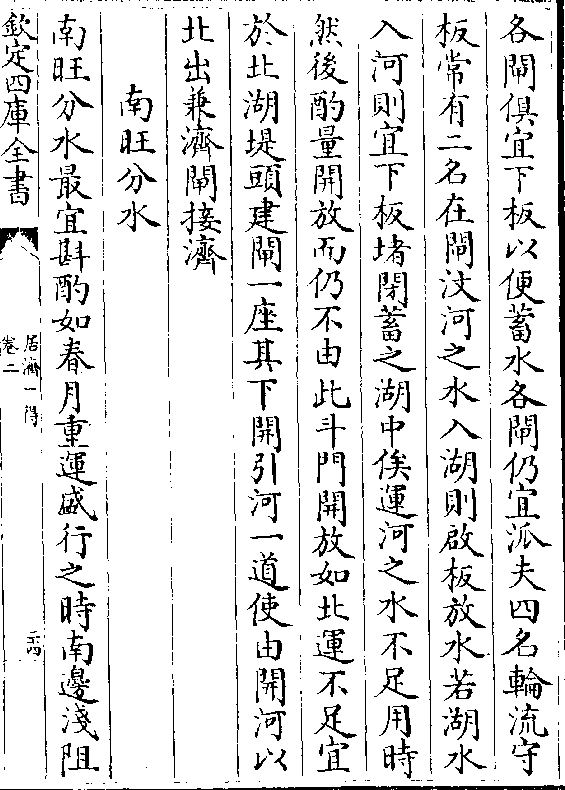 各閘俱宜下板以便蓄水各閘仍宜派夫四名輪流守
板常有二名在閘汶河之水入湖則啟板放水若湖水
入河則宜下板堵閉蓄之湖中俟運河之水不足用時
然後酌量開放而仍不由此斗門開放如北運不足宜
於北湖堤頭建閘一座其下開引河一道使由開河以
北出兼濟閘接濟
南旺分水
南旺分水最宜斟酌如春月重運盛行之時南邊淺阻
欽定四庫全書
居濟一得
卷二
二十四